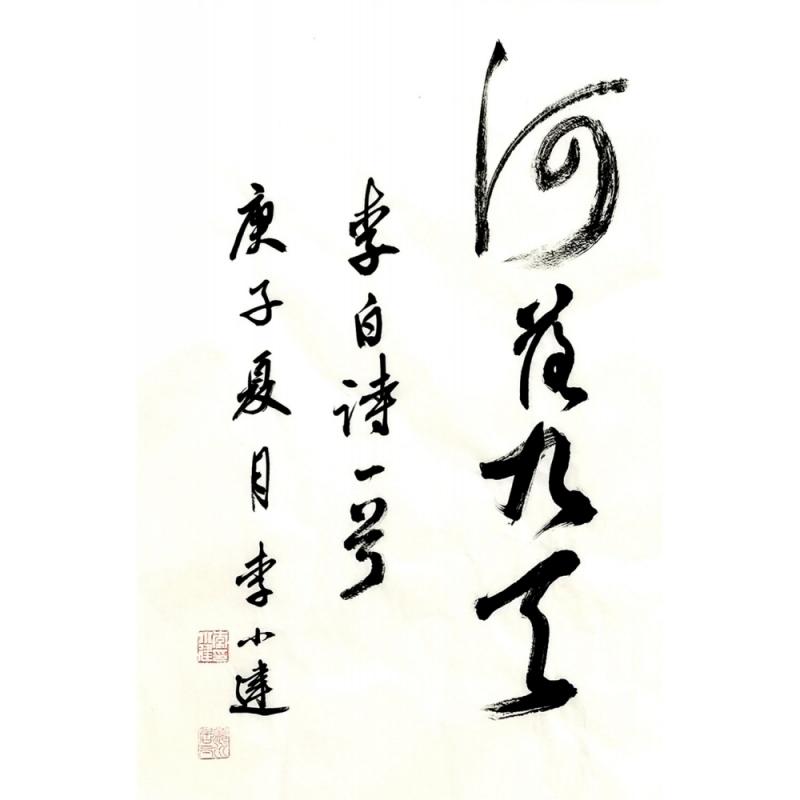 河落九天
李白诗一
庚子夏月李小